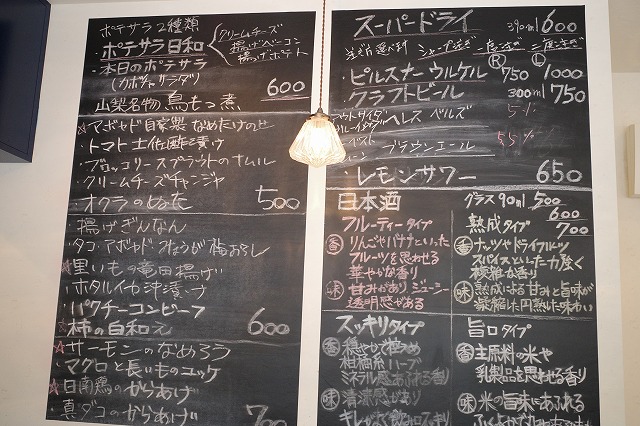 ポテサラ2種類
ポテサラ日和
クリームチーズ
揚げベーコン
揚げポテト
・本日のポテサラ
(カボチャサラダ)
600
山梨名物 鳥もつ煮
☆アボカド自家製なめたけのせ
・トマト土佐酢漬け
・ブロッコリースプラウトのナムル
・クリームチーズチャンジャ
・オクラの
500
・揚げぎんなん
・タコとアボカドみょうが梅おろし
☆里いもの竜田揚げ
・ホタルイカ沖漬け
・パクチーコンビーフ
☆柿の白和え
600
☆サーモンのなめろう
・マグロと長いものユッケ
☆日南鶏のからあげ
・真ダコのからあげ
700
スーパードライ
390ml 600
注ぎ方選べます
シャープ注ぎ
二度注ぎ
Ⓡ
Ⓛ
・ピルスナーウルケル 750 1000
・クラフトビール 300ml 750
ヘレス ベルズ 5%
ブラウンエール 5.5%
・レモンサワー 650
日本酒
グラス90ml 500
600
700
フルーティータイプ
香 りんごやバナナといった
フルーツを思わせる
華やかな香り
味 甘みがありジューシー
透明感がある
熟成タイプ
香 ナッツやドライフルーツ
スパイスといった力強く
複雑な香り
味 熟成による甘みと旨味が
凝縮した円熟した味わい
スッキリタイプ
香 穏やかで控えめ
柑橘系 ハーブ
ミネラル感あふれる香り
味 清涼感があり
キレがよく飲み口スッキリ
旨口タイプ
香 主原料の米や
乳製品を思わせる香り
味 米の旨味にあふれる